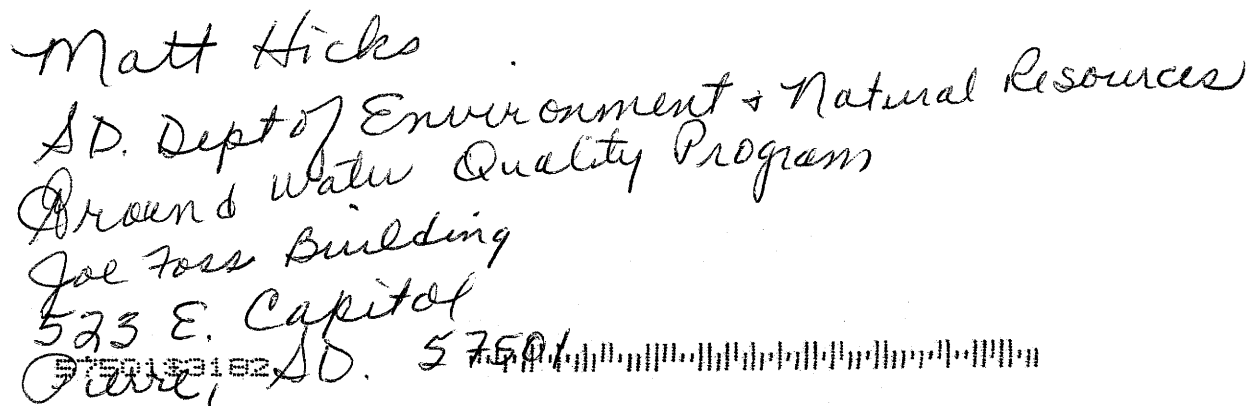 Matt Hicks
SD. Dept of Environment + Natural Resources
Ground Water Quality Program
Joe Foss Building
523 E. Capitol
Pierre, SD. 57501